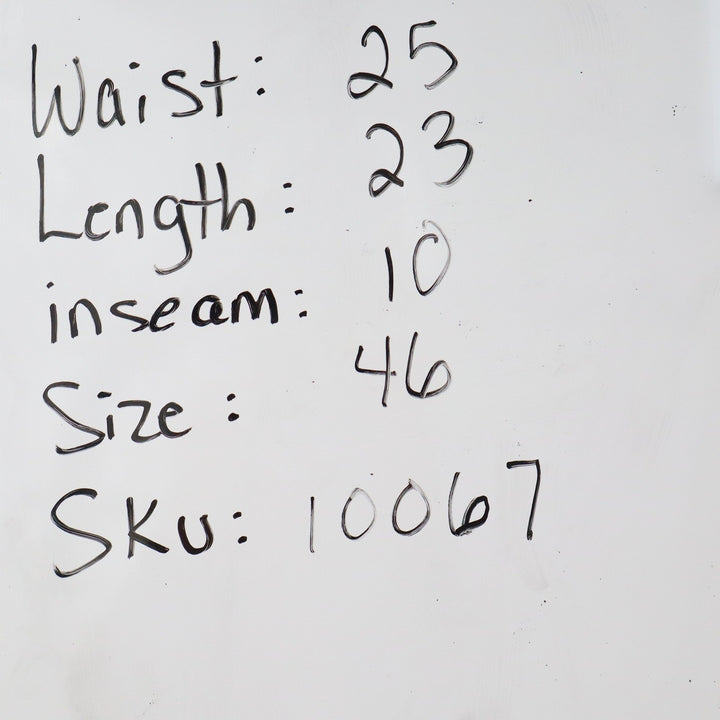 Waist: 25
Length: 23
inseam: 10
Size: 46
SKU: 10067